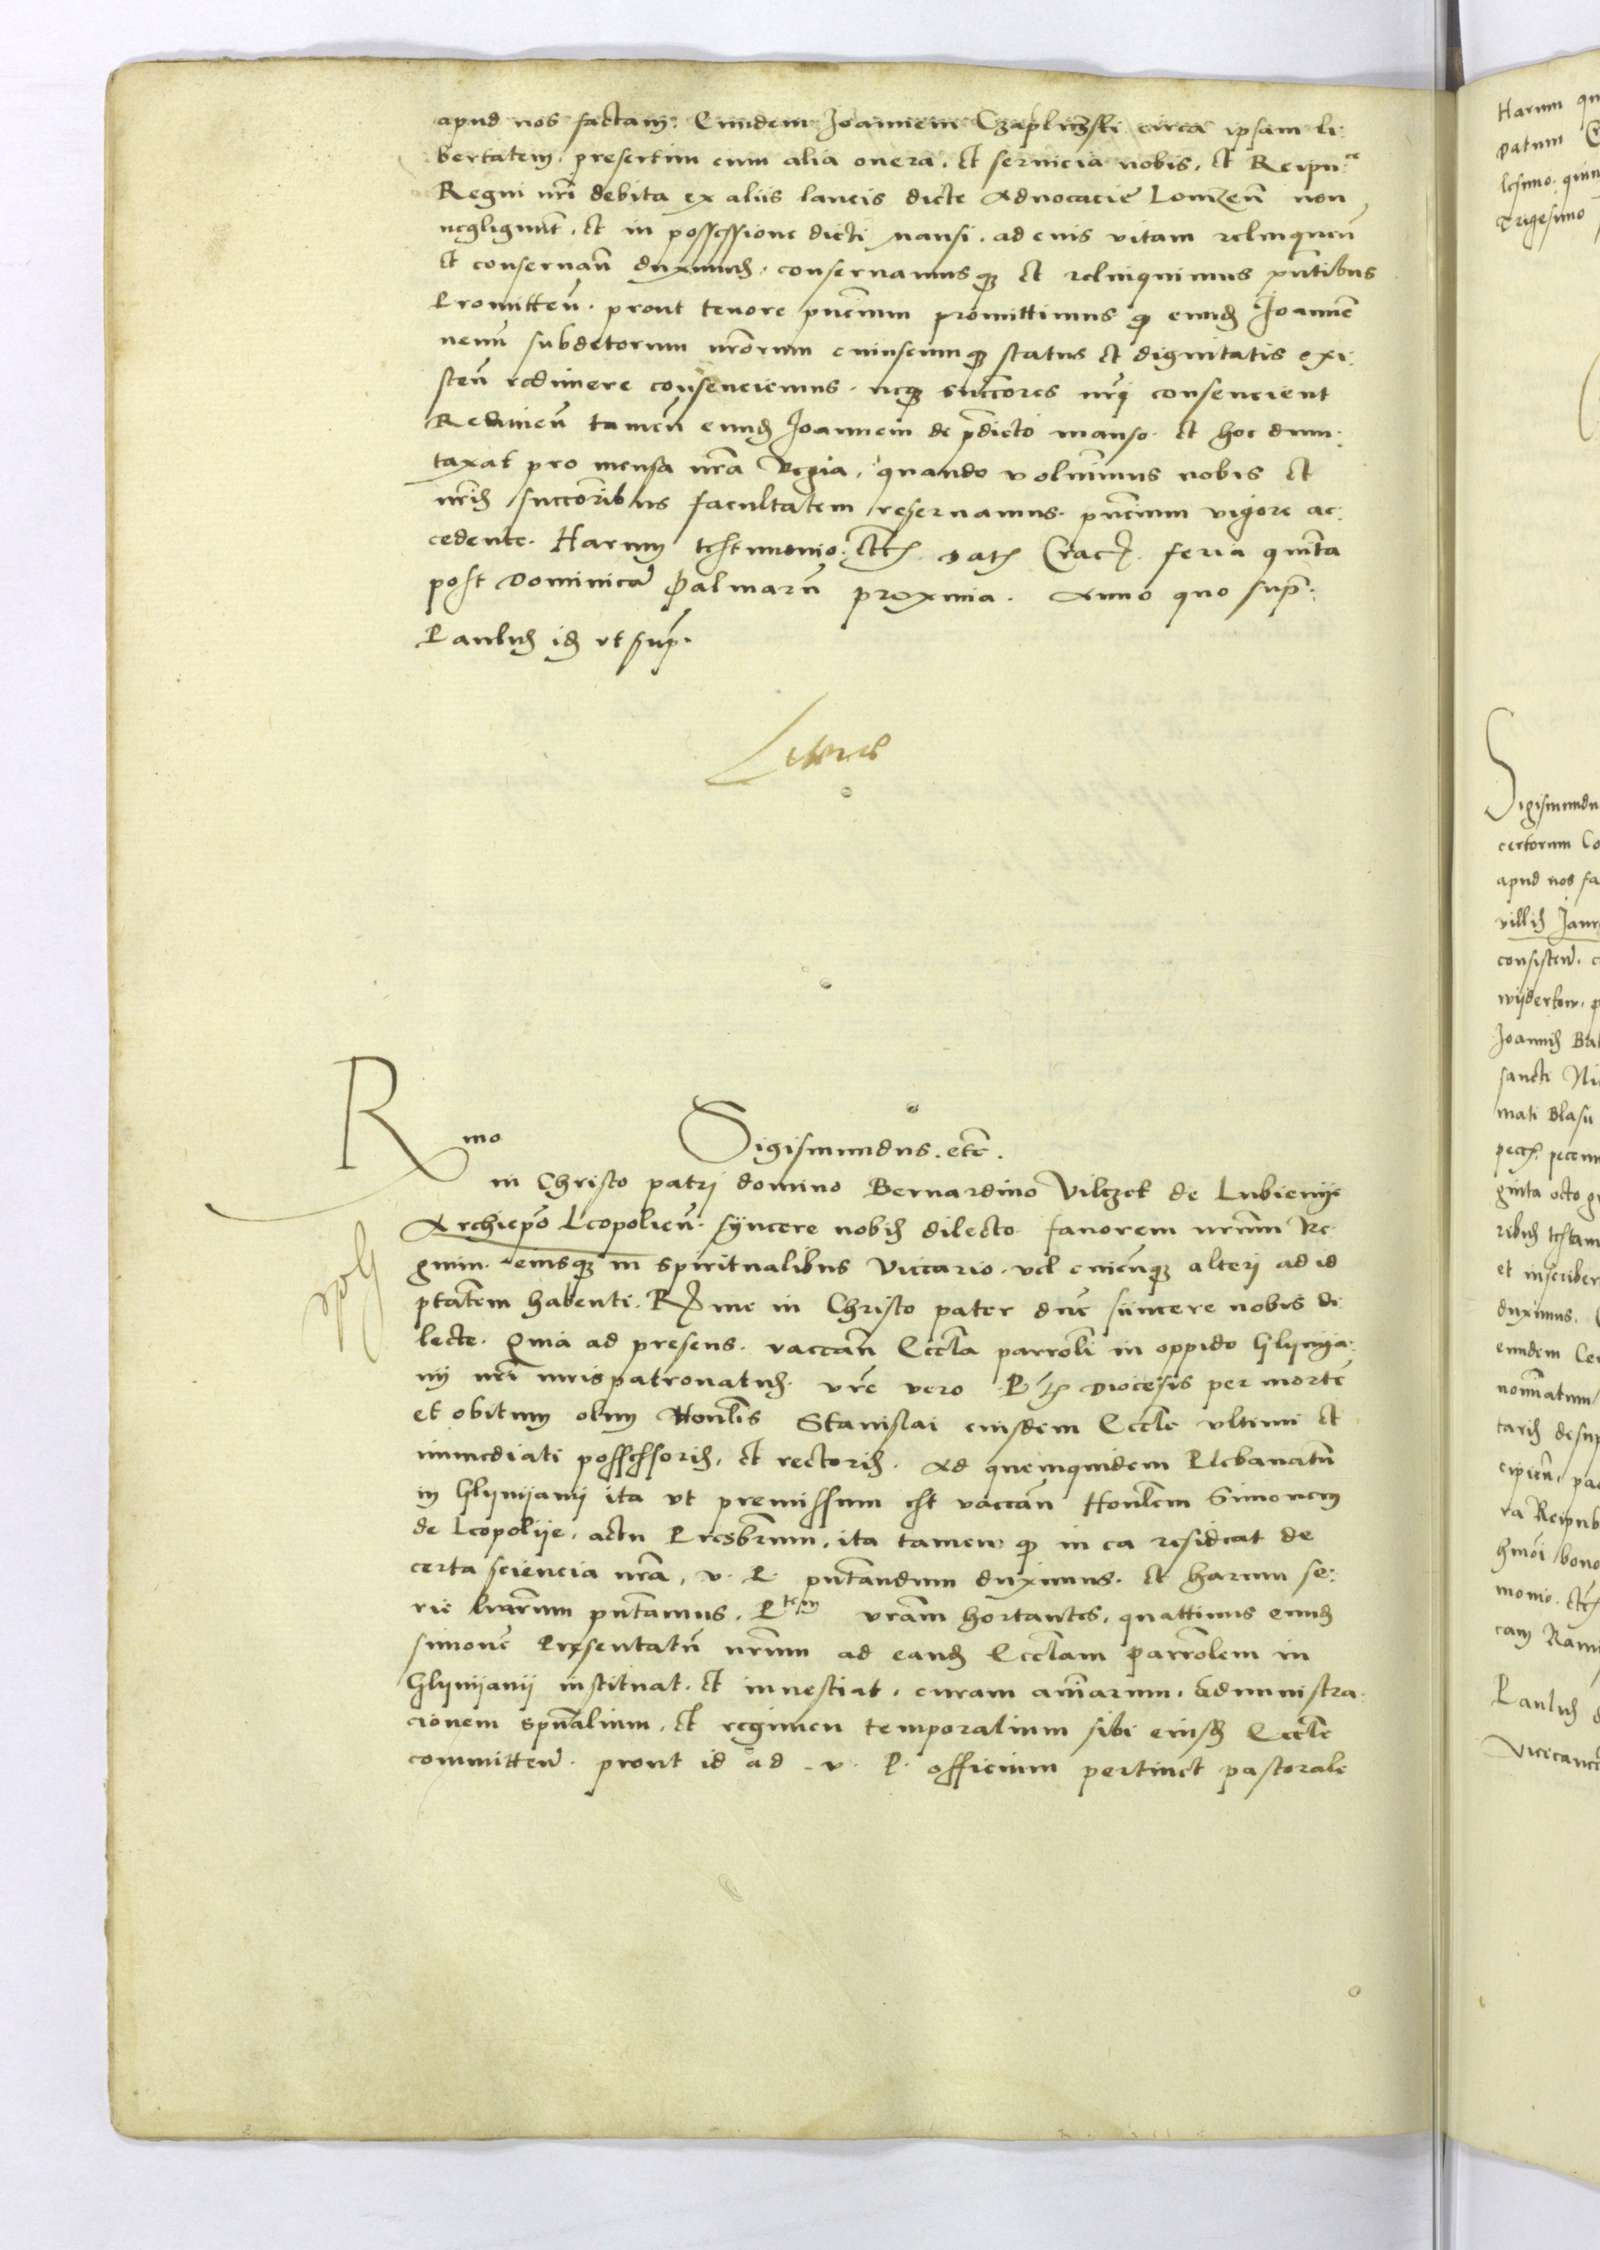 apud nos factam. Eundem Joannem Czaplinski circa ipsam li:
bertatem. presertim cum alia onera. et servicia nobis. et Reipu:ce
Regni nri debita ex aliis laneis dicte Advocacie Lomzen̄ non
negligunt. et in possessione dicti mansi. ad eius vitam relinquen̄
et conservan̄ duximus. conservamusq3 et relinquimus pn̄tibus
Promitten̄. prout tenore pn̄cium promittimus q3 eund3 Joannē
nemī subditorum nrorum cuiuscumq3 status et dignitatis exi:
sten̄ redimere consenciemus. neq3 succores nri consencient
Redimen̄ tamen eund3 Joannem de p̄dicto manso. et hoc dum:
taxat pro mensa nra Regia. quando voluīmus nobis et
nris succoribus facultatem reservamus. pn̄cium vigore ac:
cedente. Harum testimonio. etc. Dat. Crac. feria quīta
post Dominicā Palmarū proxima. Anno quo sup:
Paulus id ut sup.
R
mo
Sigismundus. etc.
in Christo patri domino Bernardino Vilczek de Lubienije
Archiepo Leopolien̄. syncere nobis dilecto. favorem nrum Re
gium. eiusq3 in spiritualibus Viccario. vel cuicunq3 alteri ad id
ptatem habenti. R me in Christo pater dne sincere nobis di
lecte. Quia ad presens. vaccan̄ Eccla parroli in oppido Glynya:
ny nri iurispatronatus. vre vero P. Diocesis per mortē
et obitum olim Honlis Stanislai eiusdem Eccle ultimi et
immediati possessoris. et rectoris. Ad quemquidem Plebanatū
in Glynijany ita ut premissum est vaccan̄ Honlem Simonem
de Leopolije. actu Presbrum. ita tamen q3 in ea resideat de
certa sciencia nra. v. P. pn̄tandum duximus. et harum se:
rie lrarum pn̄tamus. Ptem vram hortantes. quattinus eund3
simonē Presentatū nrum ad eand3 Ecclam parrolem in
Glynijanii instituat. et investiat. curam aīarum. administra:
cionem spūalium. et regimen temporalium sibi eiusd3 Eccle
committen̄. prout id ad. v. P. officium pertinet pastorale
Harum
Datum
trigesimo
Sigismundu
certorum
apud nos fa
consisten̄.
sancti Ni
duximus.
nomīatum